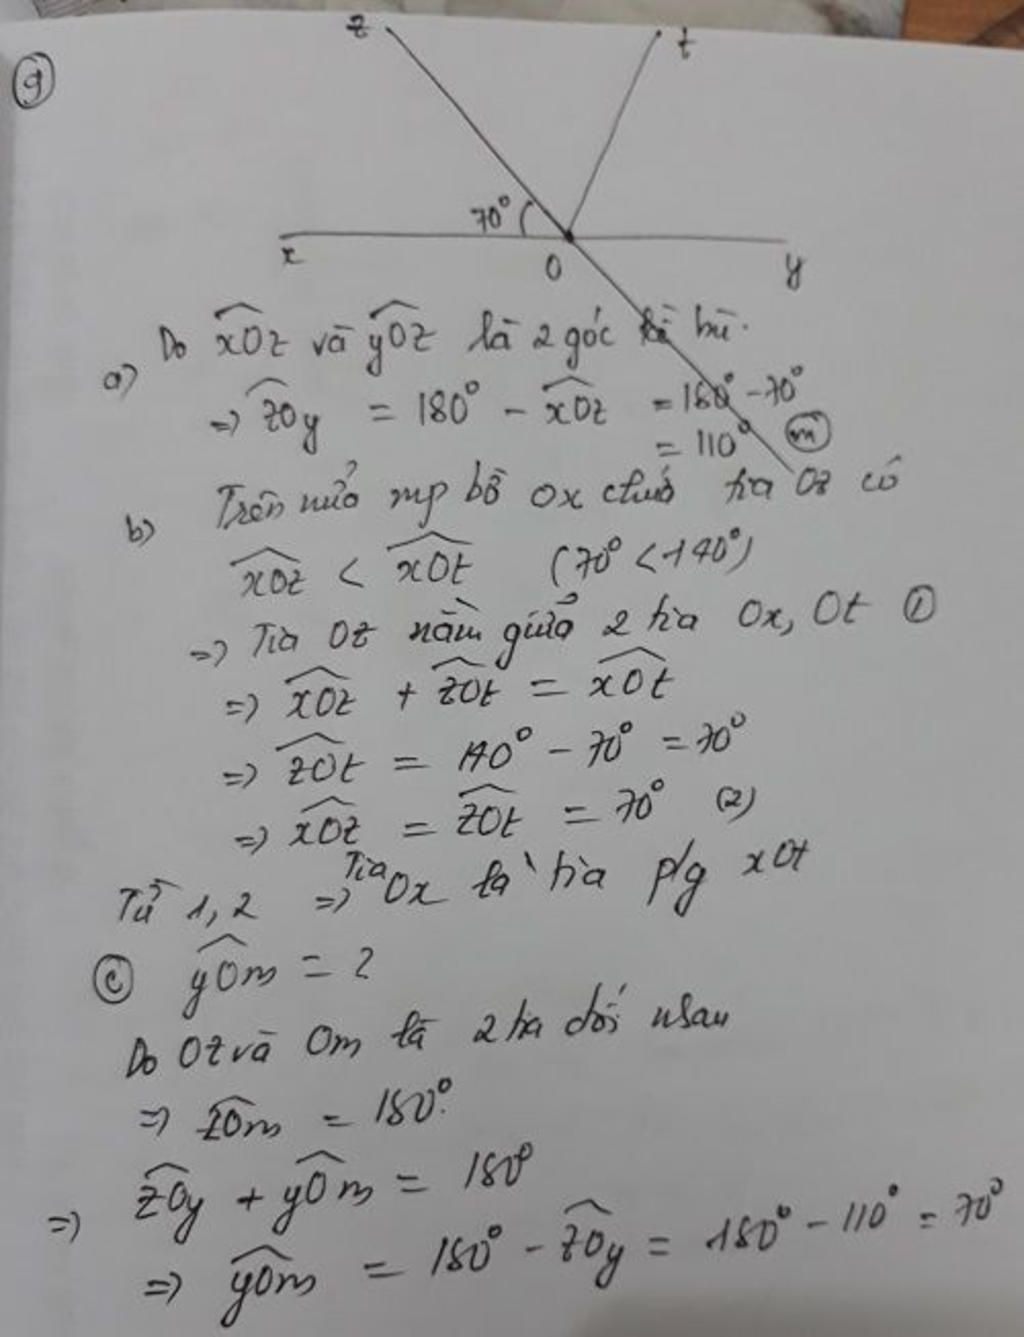 9
z
t
70°
x
O
y
a) Do xOz và yOz là 2 góc kề bù.
=> zOy = 180° - xOz = 180° - 70°
= 110°
m
b) Trên nửa mp bờ Ox chứa tia Oz có
xOz < xOt (70° < 140°)
=> Tia Oz nằm giữa 2 tia Ox, Ot ①
=> xOz + zOt = xOt
=> zOt = 140° - 70° = 70°
=> xOz = zOt = 70° (2)
Từ 1, 2 => Tia Ox là tia p/g xOt
ⓒ yOm = ?
Do Oz và Om là 2 tia đối nhau
=> zOm = 180°.
=> zOy + yOm = 180°
=> yOm = 180° - zOy = 180° - 110° = 70°